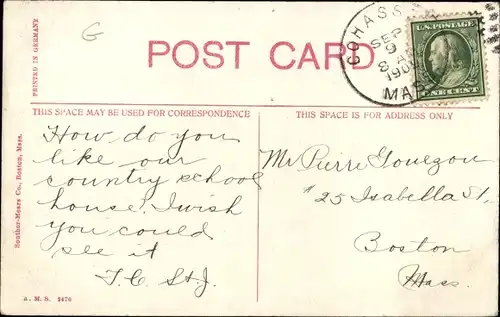 G
POST CARD
PRINTED IN GERMANY
COHASS
SEP
9
8 A
190
MAS
U.S. POSTAGE
ONE CENT
THIS SPACE MAY BE USED FOR CORRESPONDENCE
THIS SPACE IS FOR ADDRESS ONLY
How do you
like our
country school
house? I wish
you could
see it
T.C. St.J.
Mr Pierre
# 25 Isabella St,
Boston
Mass.
Souther-Mears Co., Boston, Mass.
A. M. S. 2470